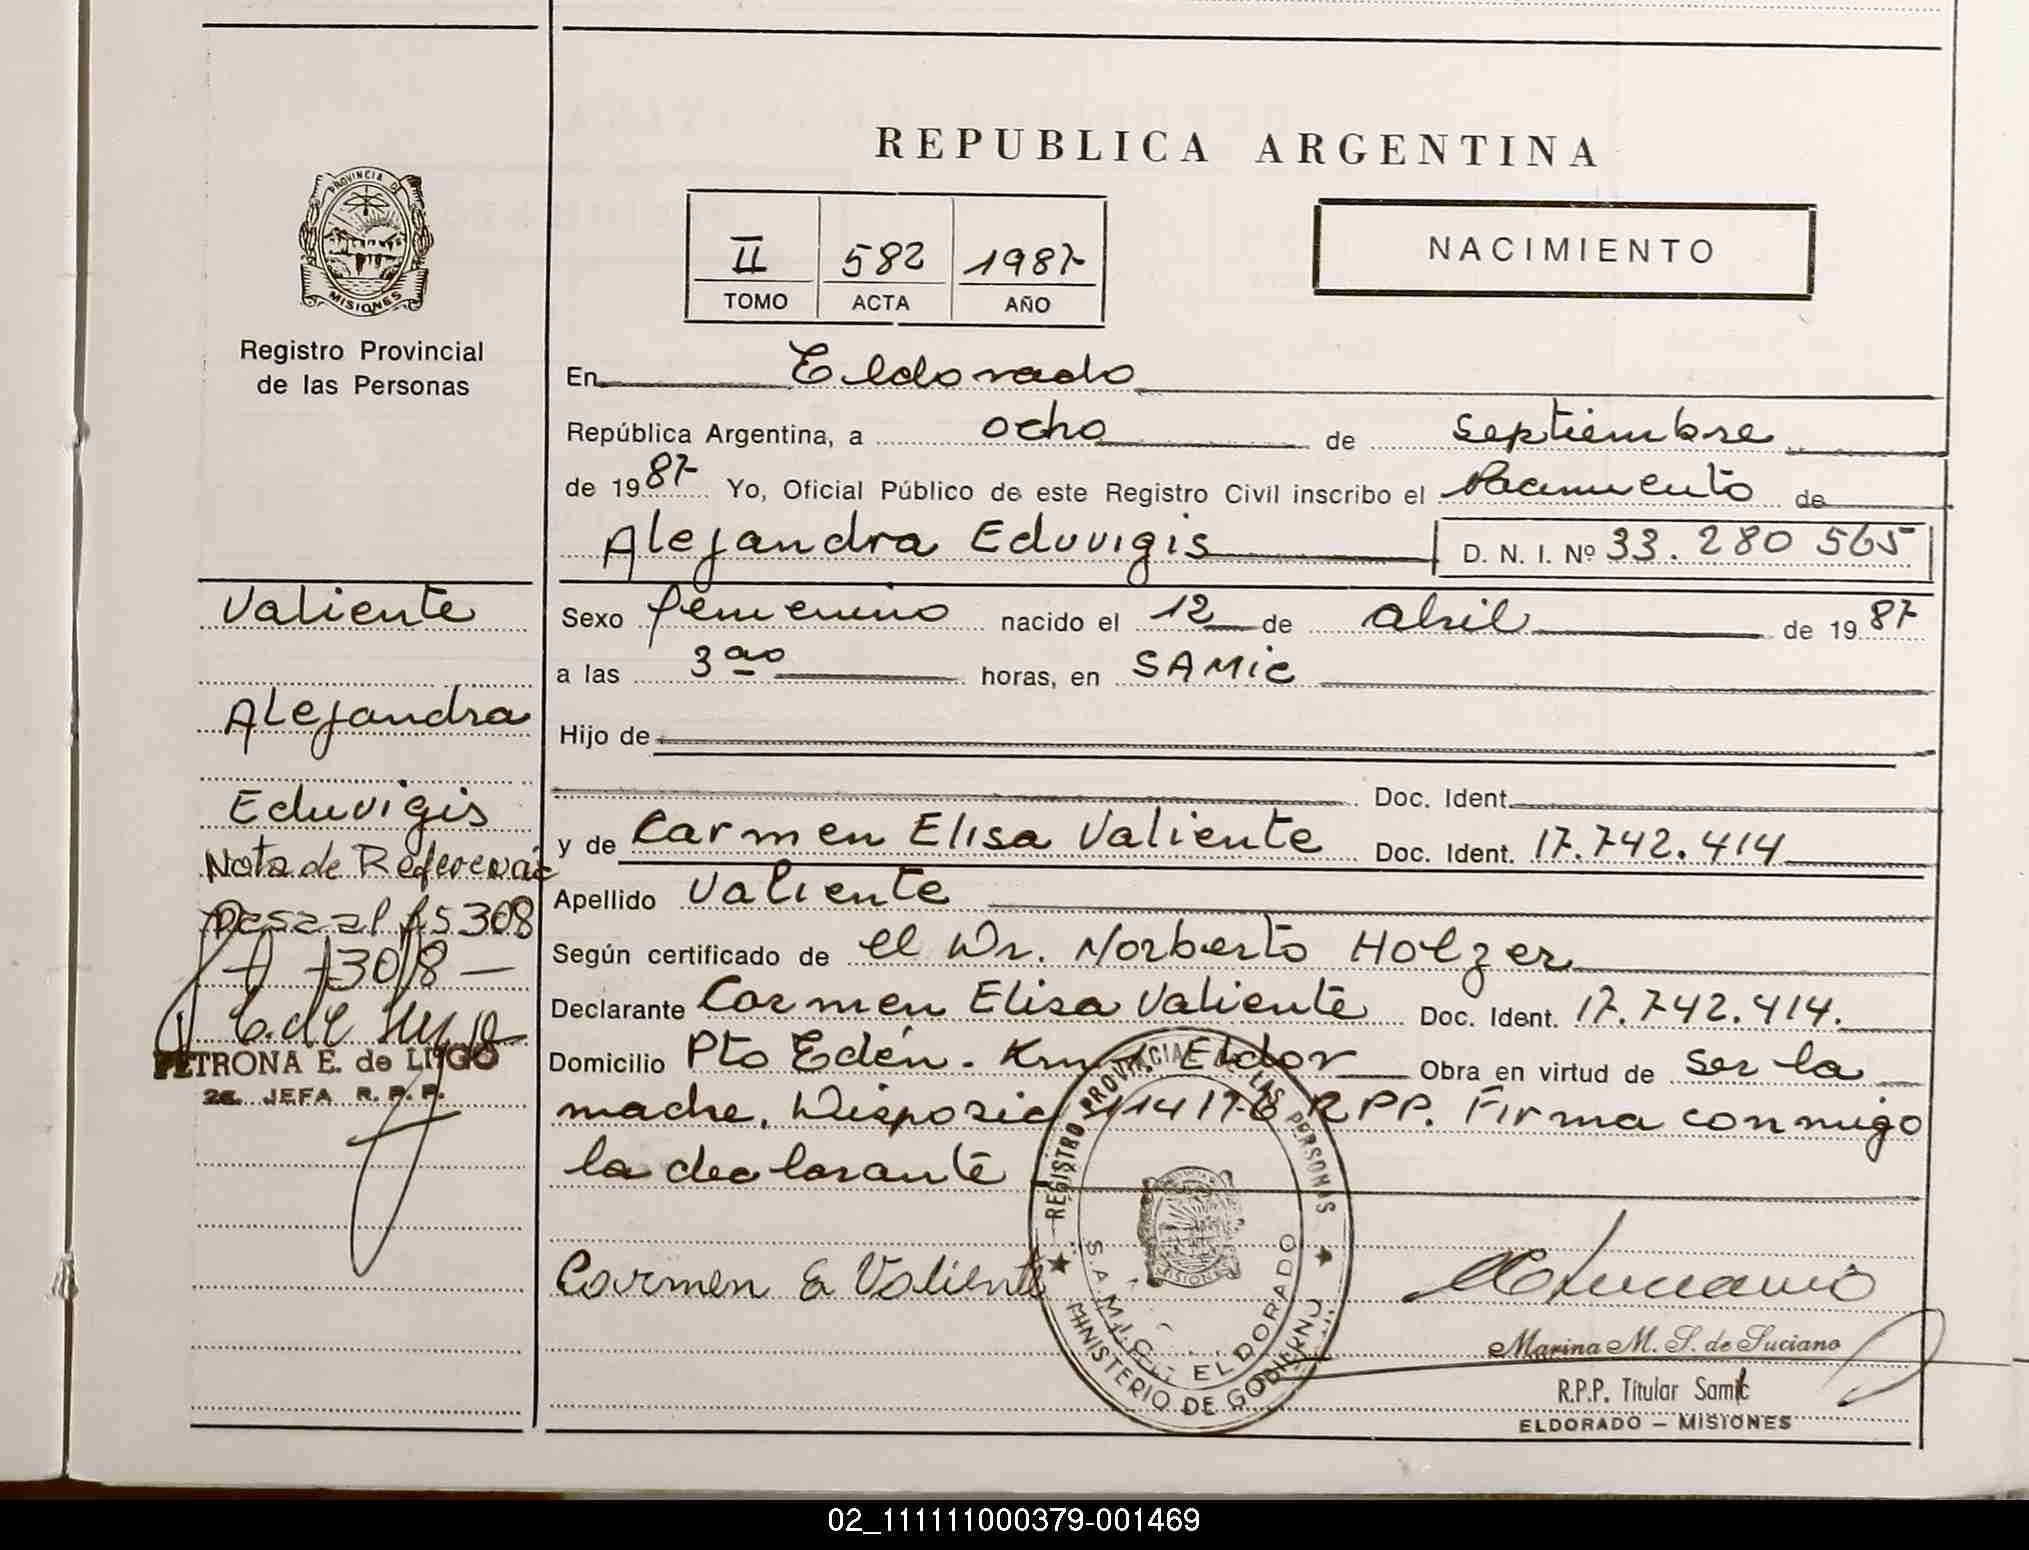 REPUBLICA ARGENTINA
PROVINCIA DE
MISIONES
Registro Provincial
de las Personas
II 582 1987
TOMO ACTA AÑO
NACIMIENTO
En Eldorado
República Argentina, a ocho de septiembre
de 1987 Yo, Oficial Público de este Registro Civil inscribo el Nacimiento de
Alejandra Eduvigis D. N. I. Nº 33.280 565
Sexo femenino nacido el 12 de abril de 1987
a las 3 horas, en SAMIC
Hijo de
Doc. Ident.
y de Carmen Elisa Valiente Doc. Ident. 17.742.414
Apellido Valiente
Según certificado de el Dr. Norberto Holzer
Declarante Carmen Elisa Valiente Doc. Ident. 17.742.414.
Domicilio Pto Edén. Km Eldor Obra en virtud de ser la
madre. Disposic RPP. Firma conmigo
la declarante
Carmen E Valiente
Marina M. S. de Luciano
R.P.P. Titular Samic
ELDORADO – MISIONES
REGISTRO PROVINCIAL DE LAS PERSONAS
MINISTERIO DE GOBIERNO
S.A.M.I.C. ELDORADO
MISIONES
Valiente
Alejandra
Eduvigis
Nota de Referencia
Pasa al fs 308
PETRONA E. de LUGO
2a. JEFA R.P.P.
02_111111000379-001469